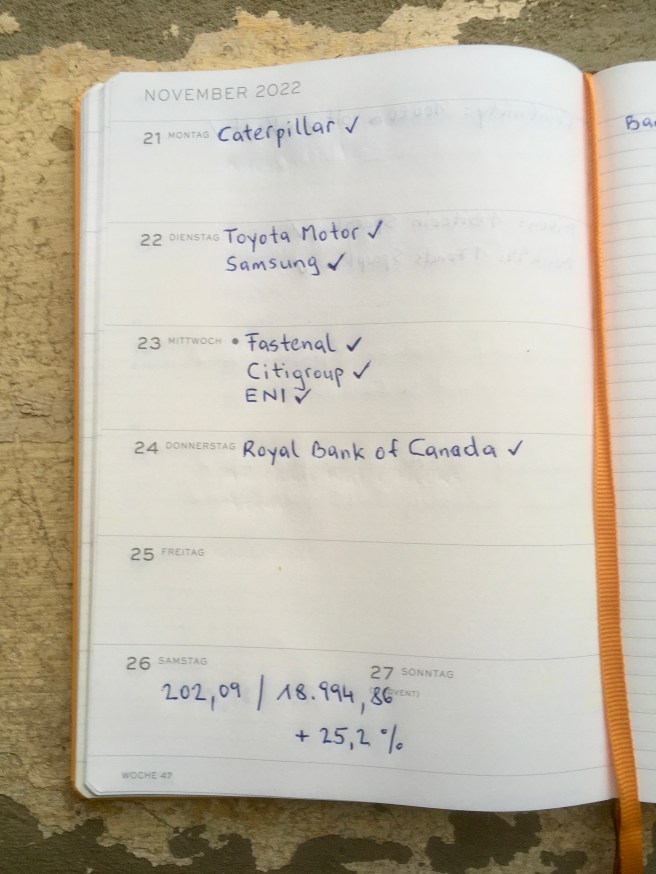 NOVEMBER 2022
21 MONTAG Caterpillar ✓
22 DIENSTAG Toyota Motor ✓
Samsung ✓
23 MITTWOCH • Fastenal ✓
Citigroup ✓
ENI ✓
24 DONNERSTAG Royal Bank of Canada ✓
25 FREITAG
26 SAMSTAG
27 SONNTAG
202,09 / 18.994,86
+ 25,2 %
WOCHE 47